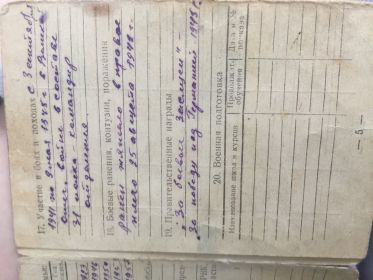 17. Участие в боях и походах с 3 сентября
1941 по 9 мая 1945 г. в Велик.
отеч. войне в составе
31 полка командир
отделения
18. Боевые ранения, контузии, поражения
ранен тяжело в правое
плечо 25 августа 1943 г.
19. Правительственные награды
"За боевые заслуги"
"За победу над Германией 1945 г.
20. Военная подготовка
Наименование школ и курсов
Продолжит.
обучения
Дата и №
приказа
— 5 —